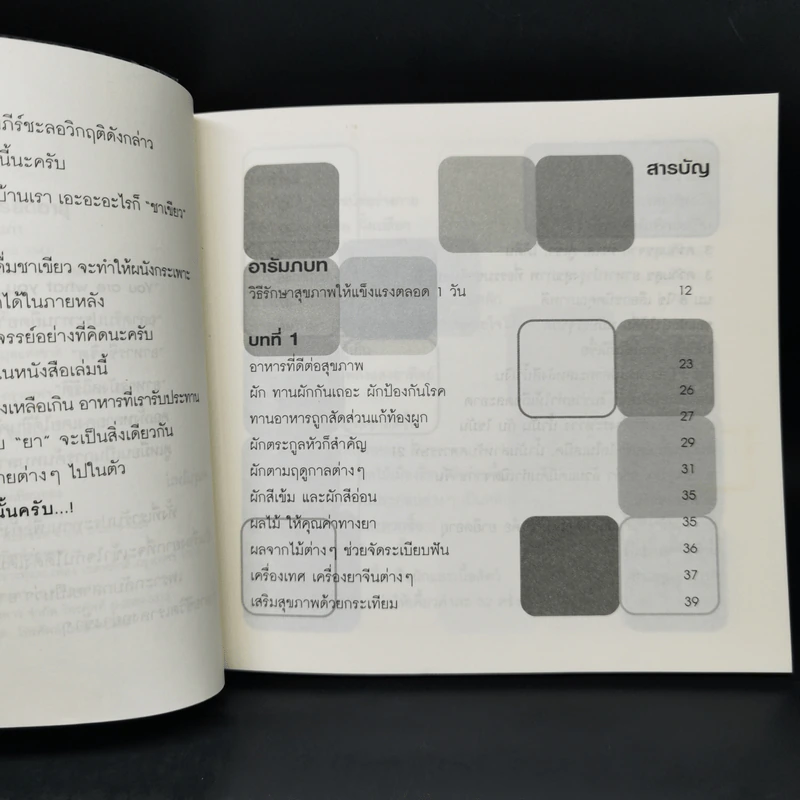 ภีร์ชะลอวิกฤติดังกล่าว
นี้นะครับ
บ้านเรา เอะอะอะไรก็ "ชาเขียว"
ดื่มชาเขียว จะทำให้ผนังกระเพาะ
ได้ในภายหลัง
จรรย์อย่างที่คิดนะครับ
ในหนังสือเล่มนี้
งเหลือเกิน อาหารที่เรารับประทาน
บ "ยา" จะเป็นสิ่งเดียวกัน
ายต่างๆ ไปในตัว
นั้นครับ...!
สารบัญ
อารัมภบท
วิธีรักษาสุขภาพให้แข็งแรงตลอด 1 วัน 12
บทที่ 1
อาหารที่ดีต่อสุขภาพ 23
ผัก ทานผักกันเถอะ ผักป้องกันโรค 26
ทานอาหารถูกสัดส่วนแก้ท้องผูก 27
ผักตระกูลหัวก็สำคัญ 29
ผักตามฤดูกาลต่างๆ 31
ผักสีเข้ม และผักสีอ่อน 35
ผลไม้ ให้คุณค่าทางยา 35
ผลจากไม้ต่างๆ ช่วยจัดระเบียบฟัน 36
เครื่องเทศ เครื่องยาจีนต่างๆ 37
เสริมสุขภาพด้วยกระเทียม 39